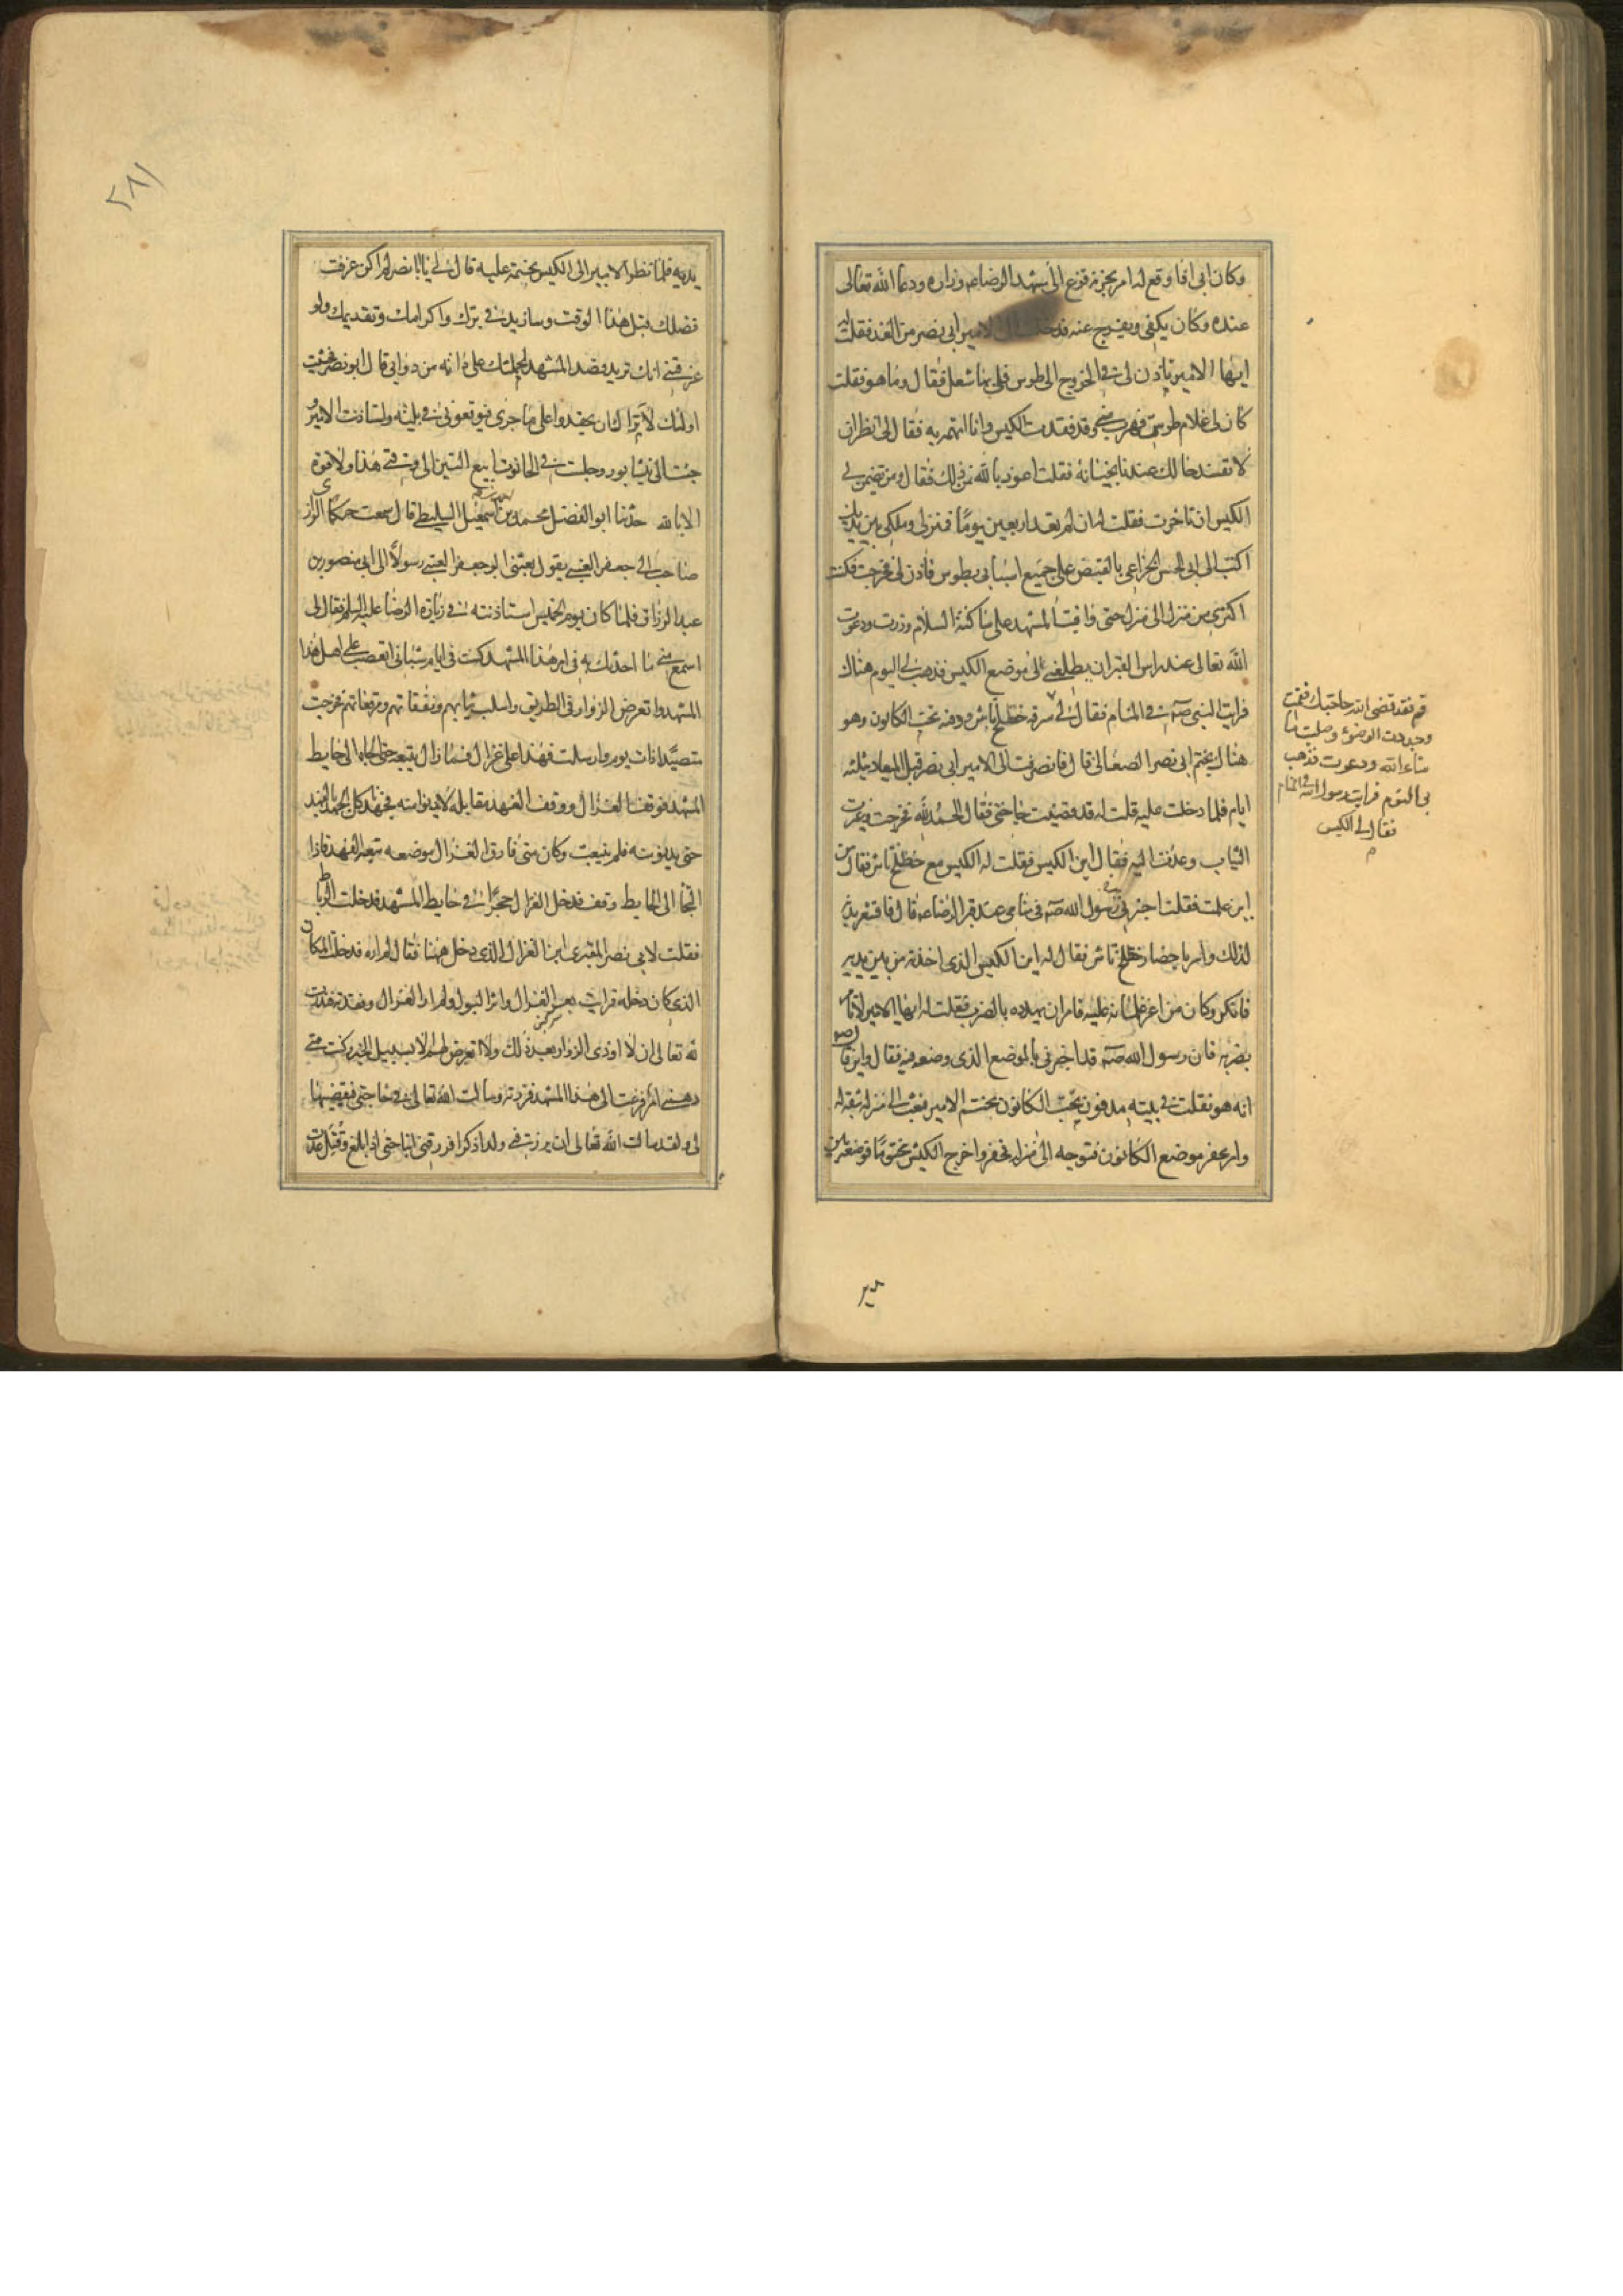 وكان ابى اذا وقع له امر يحزنه فزع الى مشهد الرضا عه وزاره ودعا الله تعالى
عنده وكان يكفى ويفرج عنه فدخلت الى الامير ابى نصر من الغد فقلت له
ايها الامير تاذن لى فى الخروج الى طوس فلى بها شغل فقال وما هو فقلت
كان لى غلام طوسى فهرب منى وقد فقدت الكيس وانا اتهمه به فقال لى انظر ان
لا تفسد حالك عندنا بخيانة فقلت اعوذ بالله من ذلك فقال ومن يضمن لى
الكيس ان تاخرت فقلت له ان لم يعد اربعين يوما فمنزلى وملكى بين يديك
اكتب الى ابى الحسن الخزاعى بالقبض على جميع اسبابى بطوس فاذن لى فخرجت فكنت
اكترى من منزل الى منزل حتى وافيت المشهد على ساكنه السلام وزرت ودعوت
الله تعالى عند راس القبر ان يطلعنى على موضع الكيس فذهب بى النوم هناك
فرايت النبى صه فى المنام فقال لى
قم فقد قضى الله حاجتك فقمت
وجددت الوضوء وصليت ما
شاء الله ودعوت فذهب
بى النوم فرايت رسول الله فى المنام
فقال لى الكيس
سرقه خطلخ تاش ودفنه تحت الكانون وهو
هناك بختم ابى نصر الصغانى قال فانصرفت الى الامير ابى نصر قبل الميعاد بثلثه
ايام فلما دخلت عليه قلت له قد قضيت حاجتى فقال الحمد لله فخرجت وغيرت
الثياب وعدت اليه فقال اين الكيس فقلت له الكيس مع خطلخ تاش فقال من
اين علمت فقلت اخبرنى به رسول الله صه فى منامى عند قبر الرضا عه قال فاقشعر بدنه
لذلك وامر باحضار خطلخ تاش فقال له اين الكيس الذى اخذته من بين يديه
فانكر وكان من اعز غلمانه عليه فامر ان يهدده بالضرب فقلت له ايها الامير لا تامر
بضربه فان رسول الله صه قد اخبرنى بالموضع الذى وضعه فيه فقال واين قال
انه هو فقلت فى بيته مدفون تحت الكانون بختم الامير فبعث الى منزله بثقة له
وامر بحفر موضع الكانون فتوجه الى منزله فحفر واخرج الكيس مختوما فوضعه بين
يديه
يديه فلما نظر الامير الى الكيس بختمه عليه قال لى يا ابا نصر لم اكن عرفت
فضلك قبل هذا الوقت وسازيد فى برك واكرامك وتقديمك ولو
عرفتنى انك تريد قصد المشهد لحملتك على دابة من دوابى قال ابو نصر فخشيت
اولئك الاتراك ان يحقدوا على ما جرى فيوقعونى فى بلية واستاذنت الامير و
جئت الى نيسابور وجلست فى الحانوت ابيع التبن الى وقتى هذا ولا قوة
الا بالله حدثنا ابو الفضل محمد بن احمد بن اسمعيل السليطى قال سمعت حكام الرازى
صاحب ابى جعفر العتبى يقول بعثنى ابو جعفر العتبى رسولا الى ابى منصور بن
عبد الرزاق فلما كان يوم الخميس استاذنته فى زيارة الرضا عليه السلم فقال لى
اسمع منى ما احدثك به فى امر هذا المشهد كنت فى ايام شبابى اتعصب على اهل هذا
المشهد واتعرض الزوار فى الطريق واسلب ثيابهم ونفقاتهم ومرقعاتهم فخرجت
متصيدا ذات يوم وارسلت فهدا على غزال فما زال يتبعه حتى الجاه الى حايط
المشهد فوقف الغزال ووقف الفهد مقابله لا يدنو منه فجهدنا كل الجهد بالفهد
حتى يدنو منه فلم ينبعث وكان متى فارق الغزال موضعه يتبعه الفهد فاذا
التجا الى الحايط وقف فدخل الغزال حجرا فى حايط المشهد فدخلت الرباط
فقلت لابى نصر المقرى اين الغزال الذى دخل ههنا فقال لم اره فدخلت المكان
الذى كان دخله فرايت بعر الغزال واثر البول ولم ار الغزال وفقدته فنذرت
لله تعالى ان لا اوذى الزوار بعد ذلك ولا اتعرض لهم الا بسبيل الخير وكنت متى
دهمنى امر فزعت الى هذا المشهد فزرته وسالت الله تعالى فى حاجتى فيقضيها
لى ولقد سالت الله تعالى ان يرزقنى ولدا ذكرا فرزقنى ابنا حتى اذا بلغ وقتل عدت